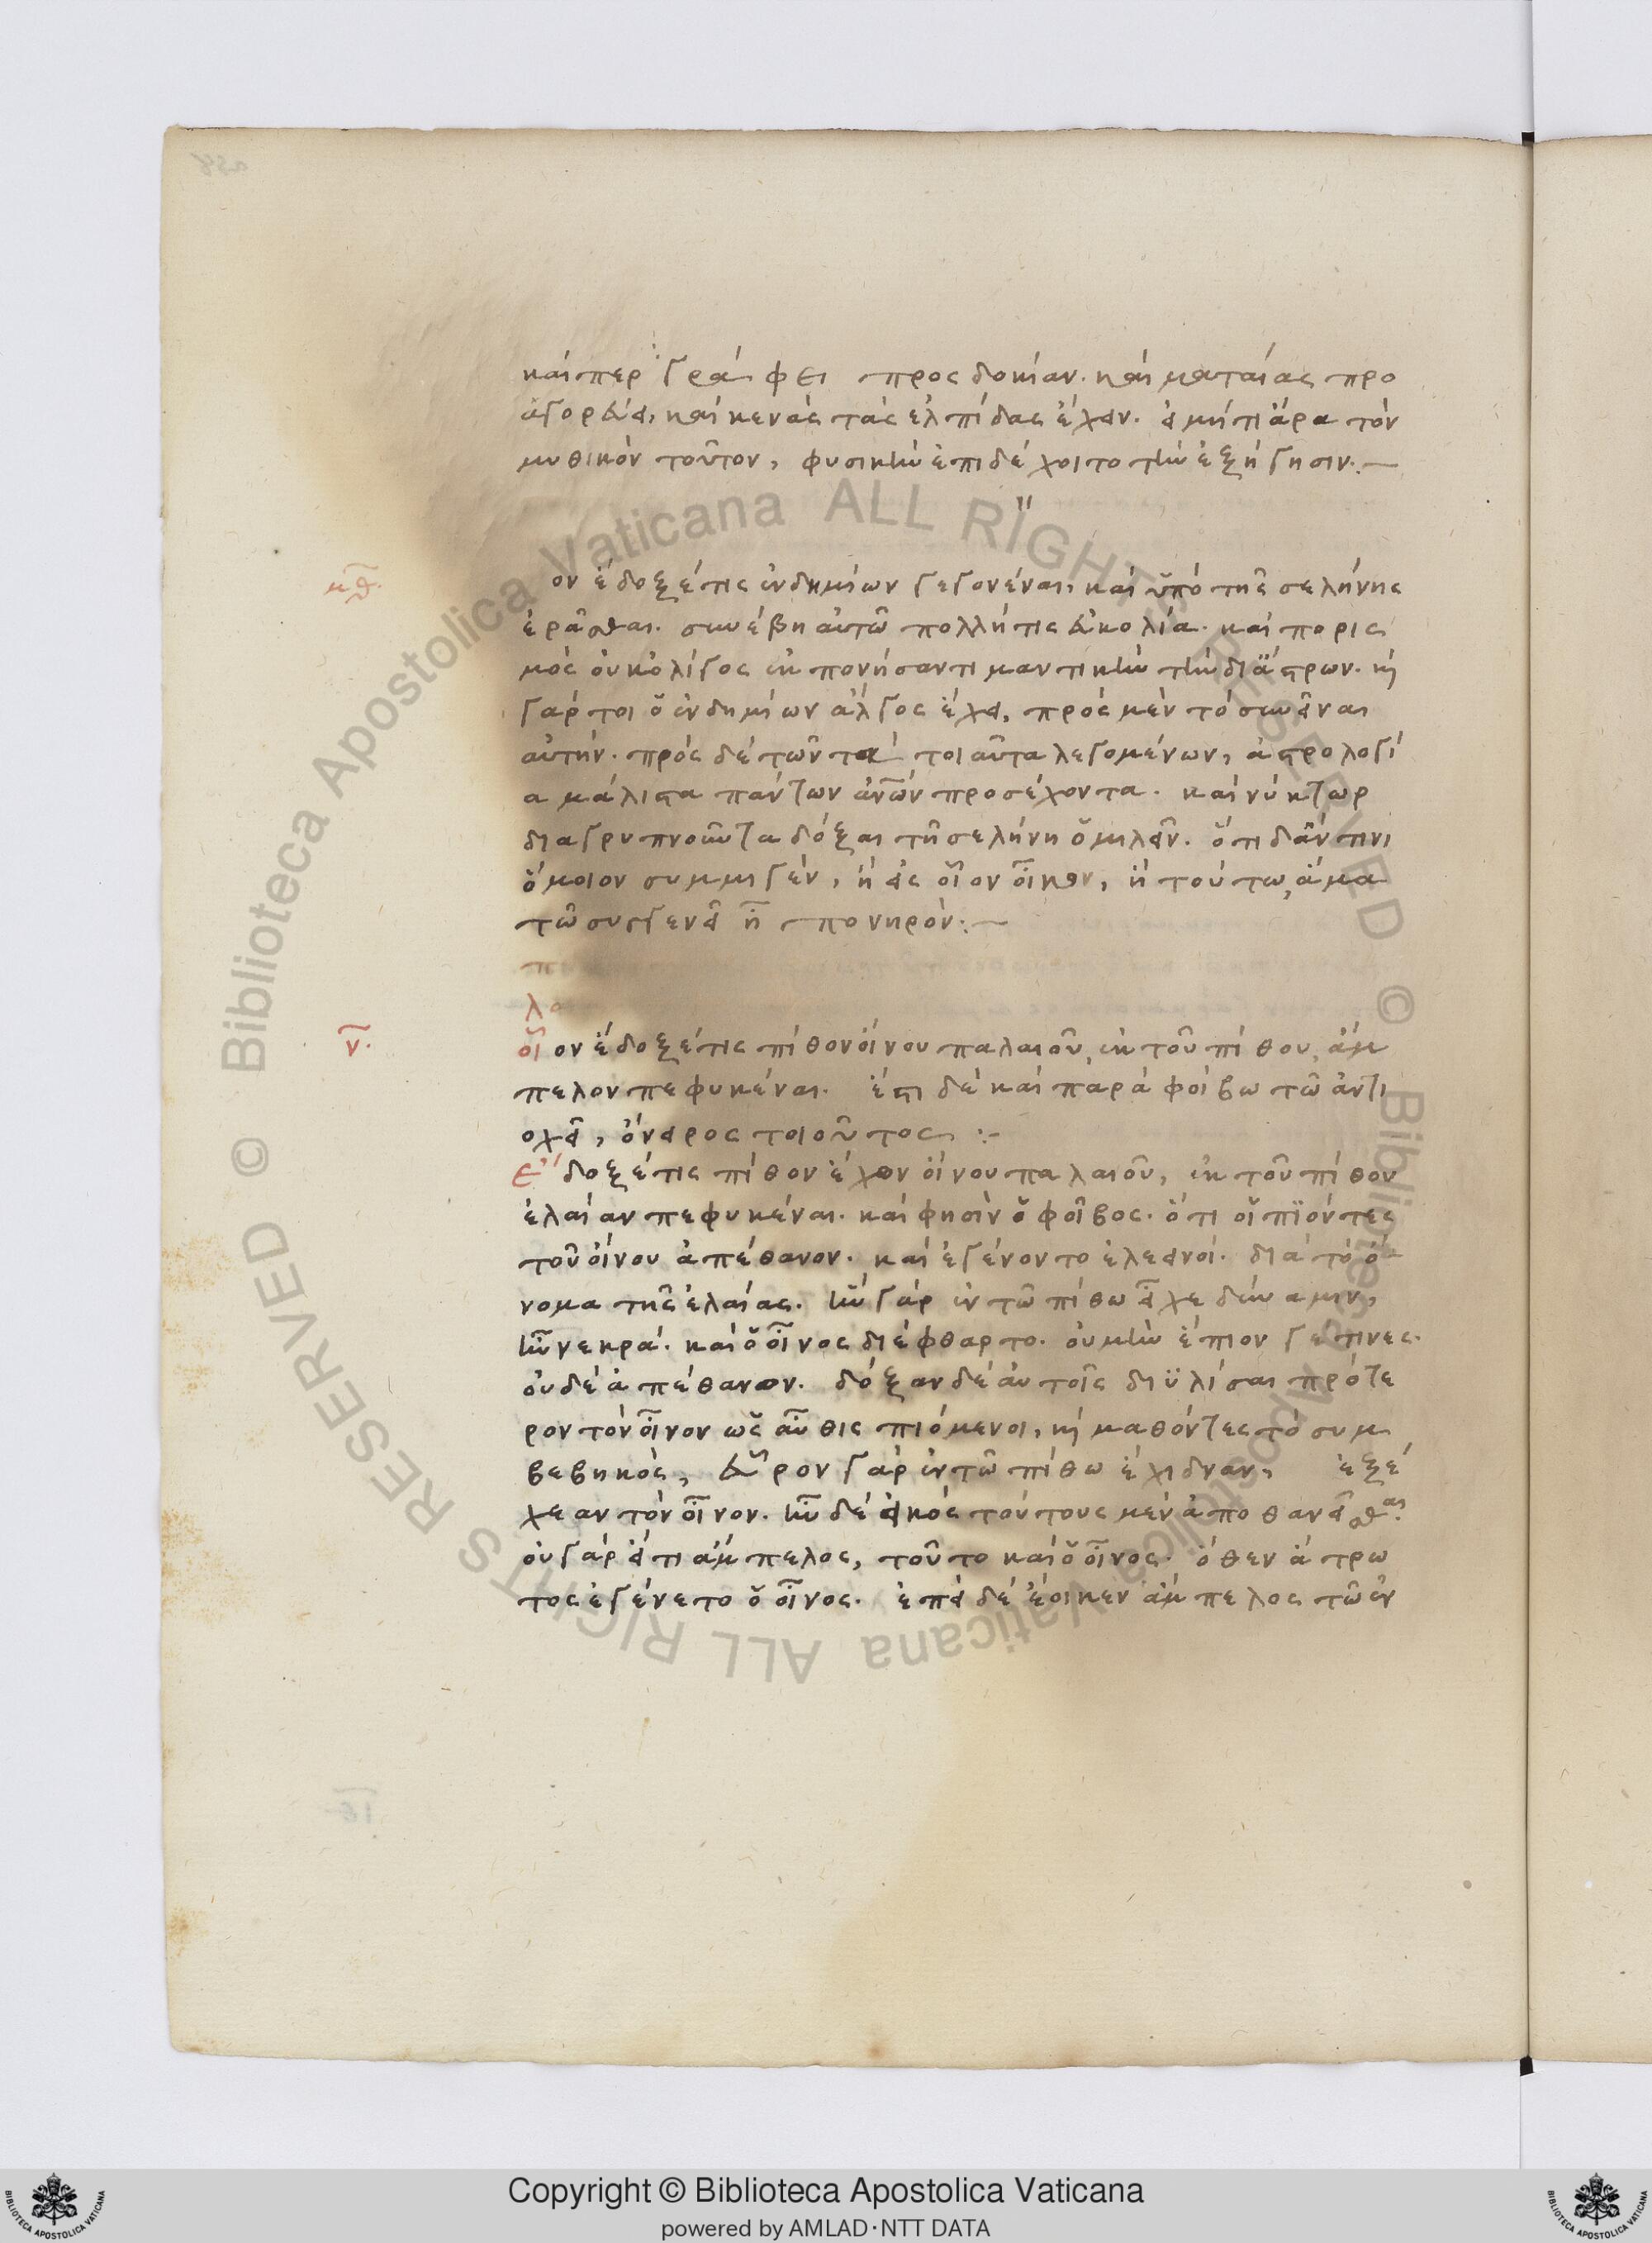 καίπερ γράφει προς δοκίαν. καὶ ματαίας προ
ἀγορεύει, καὶ κενὰς τὰς ἐλπίδας ἔχειν. εἰ μήτι ἄρα τὸν
μυθικὸν τοῦτον, φυσικὴν ἐπιδέχοιτο τὴν ἐξήγησιν:—
μθ.
ον ἔδοξέ τις ἐνδημίων γεγονέναι, καὶ ὑπὸ τῆς σελήνης
ἐρᾶσθαι. συνέβη αὐτῶ πολλή τις εὐκολία. καὶ πορισ
μὸς οὐκ ὀλίγος ἐκπονήσαντι μαντικὴν τὴν δι ἄστρων. καὶ
γάρ τοι ὁ ἐνδημίων λόγος ἔχει, πρὸς μὲν τὸ συνεῖναι
αὐτήν. πρὸς δὲ τῶν τὰ τοιαῦτα λεγομένων, ἀστρολογί
α μάλιστα πάντων ἀνῶν προσέχοντα. καὶ νύκτωρ
διαγρυπνοῦντα δόξαι τῆ σελήνη ὁμιλεῖν. ὅτι δἄν τινι
ὅμοιον συμμιγὲν, ἢ εἰς οἷον οἶκον, ἢ τούτω, ἅμα
τῶ συγγενεῖ ἦ πονηρόν:—
ν.
οἷον ἔδοξέ τις πίθον οἴνου παλαιοῦ, ἐκ τοῦ πίθου, ἄμ
πελον πεφυκέναι. ἔστι δὲ καὶ παρὰ φοίβω τῶ ἀντι
οχεῖ, ὄνειρος τοιοῦτος:-
Ἔδοξέ τις πίθον ἔχων οἴνου παλαιοῦ, ἐκ τοῦ πίθου
ἐλαίαν πεφυκέναι. καὶ φησὶν ὁ φοῖβος. ὅτι οἱ πϊόντες
τοῦ οἴνου ἀπέθανον. καὶ ἐγένοντο ἐλεεινοί. διὰ τὸ ὄ
νομα τῆς ἐλαίας. ἣν γὰρ ἐν τῶ πίθω εἶχε δύναμιν,
ἦν νεκρά. καὶ ὁ οἶνος διέφθαρτο. οὐ μὴν ἔπιον γε τινες.
οὐδὲ ἀπέθανον. δόξαν δὲ αὐτοῖς διϋλίσαι πρότε
ρον τὸν οἶνον ὡς αὖθις πιόμενοι, καὶ μαθόντες τὸ συμ
βεβηκὸς, εὗρον γὰρ ἐν τῶ πίθω ἔχιδναν, ἐξέ
χεαν τὸν οἶνον. ἦν δὲ εἰκὸς τούτους μὲν ἀποθανεῖσθαι.
οὐ γὰρ εἴ τι ἄμπελος, τοῦτο καὶ ὁ οἶνος. ὅθεν ἄτρω
τος ἐγένετο ὁ οἶνος. ἐπεὶ δὲ ἔοικεν ἄμπελος τῶ ἐν
Copyright © Biblioteca Apostolica Vaticana
powered by AMLAD·NTT DATA